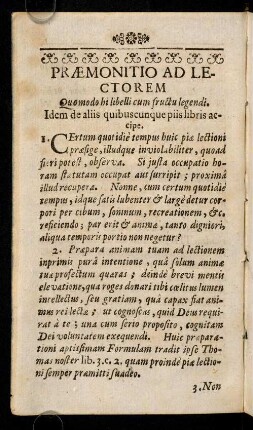 PRÆMONITIO AD LE-
CTOREM
Quomodo hi libelli cum fructu legendi.
Idem de aliis quibuscunque piis libris ac-
cipe.
1. CErtum quotidiè tempus huic piæ lectioni
præfige, illudque inviolabiliter, quoad
fieri potest, observa. Si justa occupatio ho-
ram statutam occupat aut surripit; proximâ
illud recupera. Nonne, cum certum quotidie
tempus, idque satis lubenter & largè detur cor-
pori per cibum, somnum, recreationem, &c.
reficiendo; par erit & animæ, tanto digniori,
aliqua temporis portio non negetur?
2. Præpara animam tuam ad lectionem
inprimis purâ intentione, quâ solum animæ
tuæ profectum quæras; deindè brevi mentis
elevatione, qua roges donari tibi cœlitus lumen
intellectus, seu gratiam, quâ capax fiat ani-
mus rei lectæ; ut cognoscas, quid Deus requi-
rat à te; una cum serio proposito, cognitam
Dei voluntatem exequendi. Huic præpara-
tioni aptissimam Formulam tradit ipse Tho-
mas noster lib. 3. c. 2. quam proinde piæ lectio-
ni semper præmitti suadeo.
3. Non